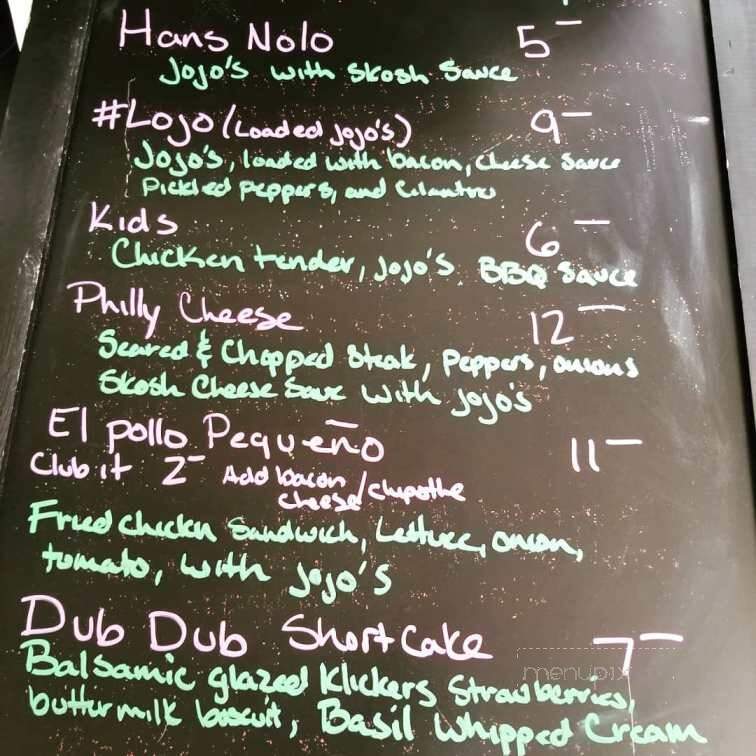 Hans Nolo 5-
JoJo's with Skosh Sauce
#LoJo (Loaded JoJo's) 9-
JoJo's, loaded with bacon, cheese sauce
Pickled peppers, and Cilantro
Kids 6-
Chicken tender, JoJo's. BBQ Sauce
Philly Cheese 12-
Seared & Chopped Steak, peppers, onions
Skosh Cheese Sauc with JoJo's
El pollo Pequeño 11-
Club it 2- Add bacon/chipotle
cheese
Fried chicken Sandwich, Lettuce, onion,
tomato, with JoJo's
Dub Dub Shortcake 7-
Balsamic glazed Klickers Strawberries,
buttermilk biscuit, Basil Whipped Cream
menupix